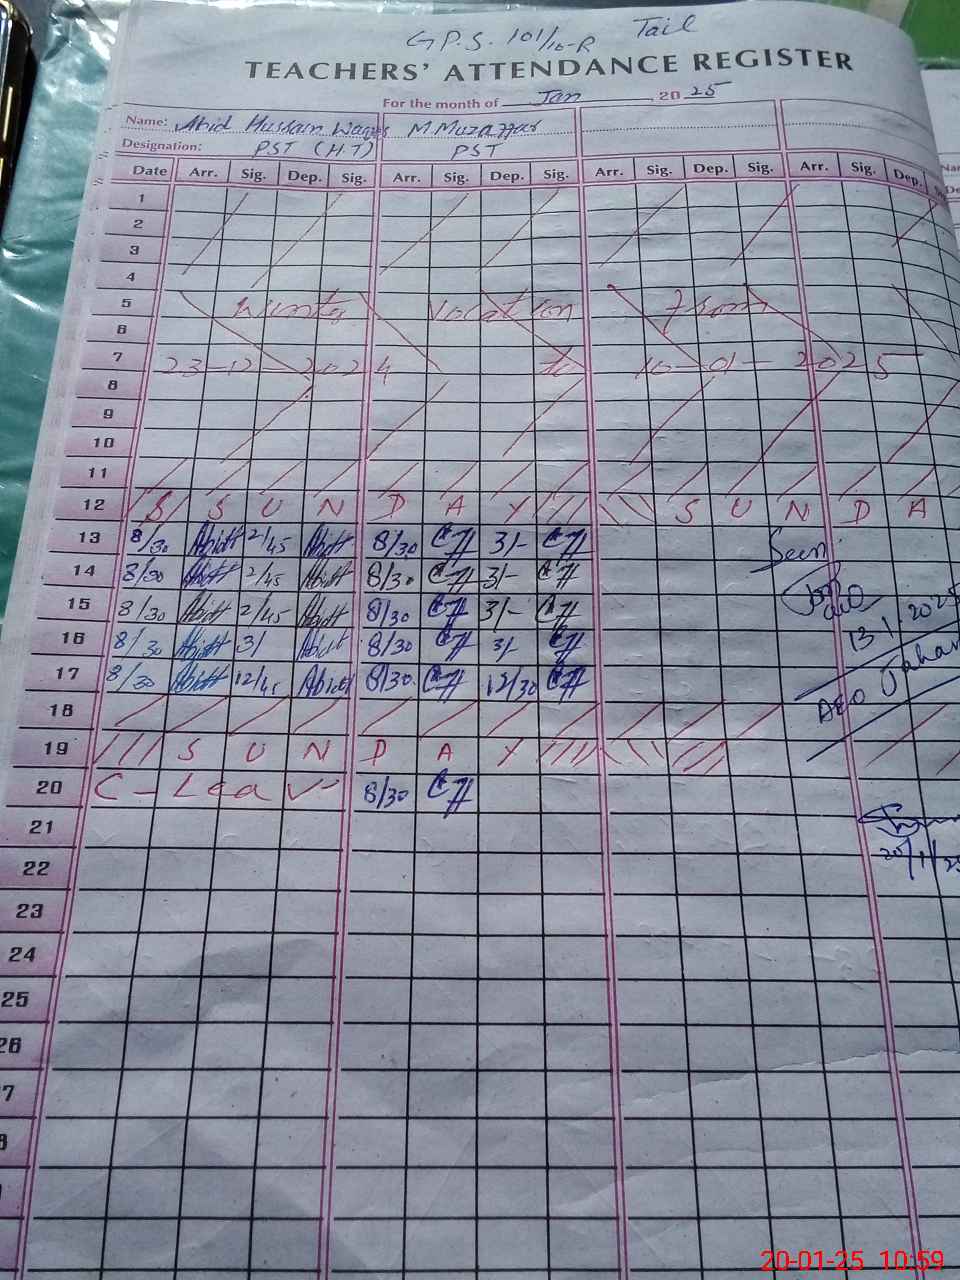 G.P.S. 101/10-R Tail
TEACHERS' ATTENDANCE REGISTER
For the month of Jan , 20 25
Name: Abid Hussain M Muzaffar
Designation: PST (H.T) PST
Date Arr. Sig. Dep. Sig. Arr. Sig. Dep. Sig. Arr. Sig. Dep. Sig. Arr. Sig. Dep.
1
2
3
4
5 Winter Vacation from
6
7 23-12-2024 to 10-01-2025
8
9
10
11
12 S S U N D A Y S U N D A
13 8/30 Abid 2/45 Abid 8/30 3/- Seen
14 8/30 Abid 2/45 Abid 8/30 3/-
15 8/30 Abid 2/45 Abid 8/30 3/- 13.1.2025
16 8/30 Abid 3/ Abid 8/30 3/-
17 8/30 Abid 12/45 Abid 8/30 12/30 AEO Jahan
18
19 S U N D A Y
20 C-Leav 8/30
21
22 20/1/25
23
24
25
26
7
8
20-01-25 10:59